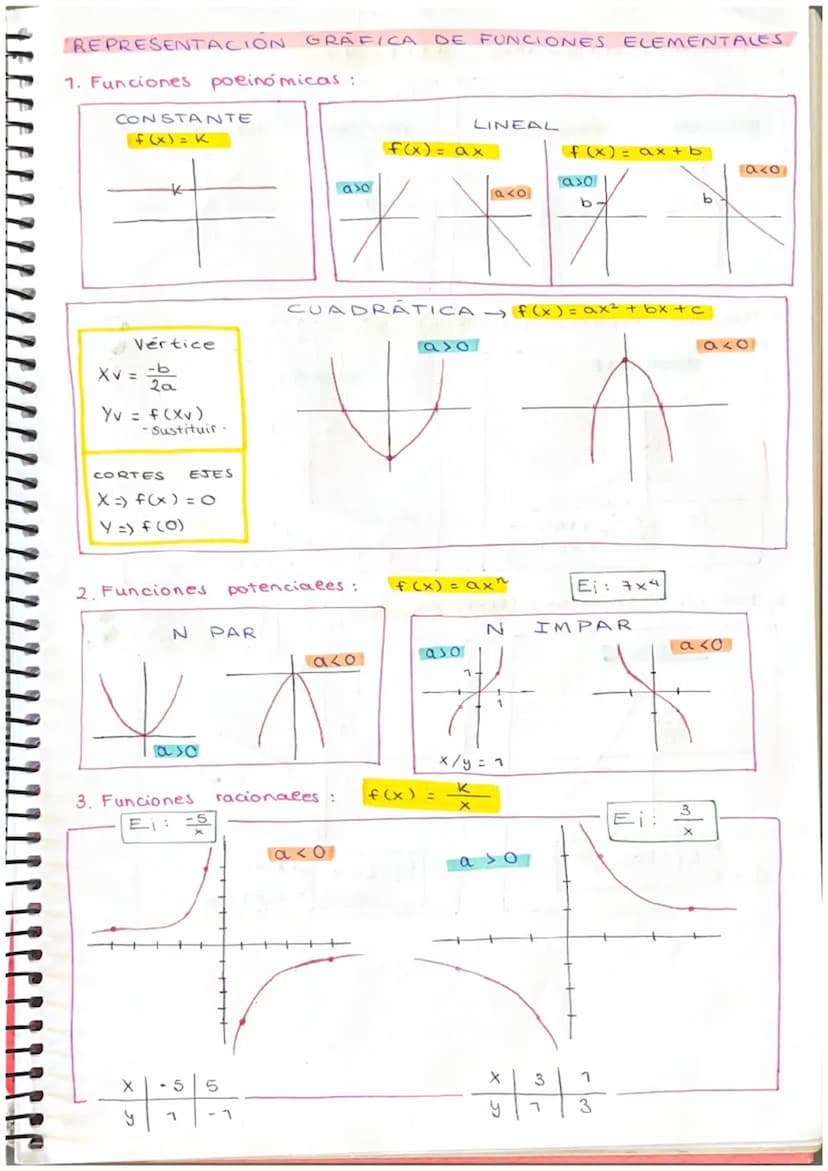 REPRESENTACIÓN GRÁFICA DE FUNCIONES ELEMENTALES
1. Funciones polinómicas:
CONSTANTE
f(x) = K
K
LINEAL
f(x) = ax
a>0
a<0
f(x) = ax + b
a>0
b
a<0
b
CUADRÁTICA → f(x) = ax² + bx + c
Vértice
Xv = -b/2a
Yv = f(Xv)
- sustituir -
CORTES EJES
X => f(x) = 0
Y => f(0)
a>0
a<0
2. Funciones potenciales: f(x) = axⁿ Ej: 7x⁴
N PAR
a<0
a>0
N IMPAR
a>0
1
1
x/y = 1
a<0
3. Funciones racionales: f(x) = K/x
Ej: -5/x
a<0
a>0
Ej: 3/x
x | -5 | 5
y | 1 | -1
x | 3 | 1
y | 1 | 3